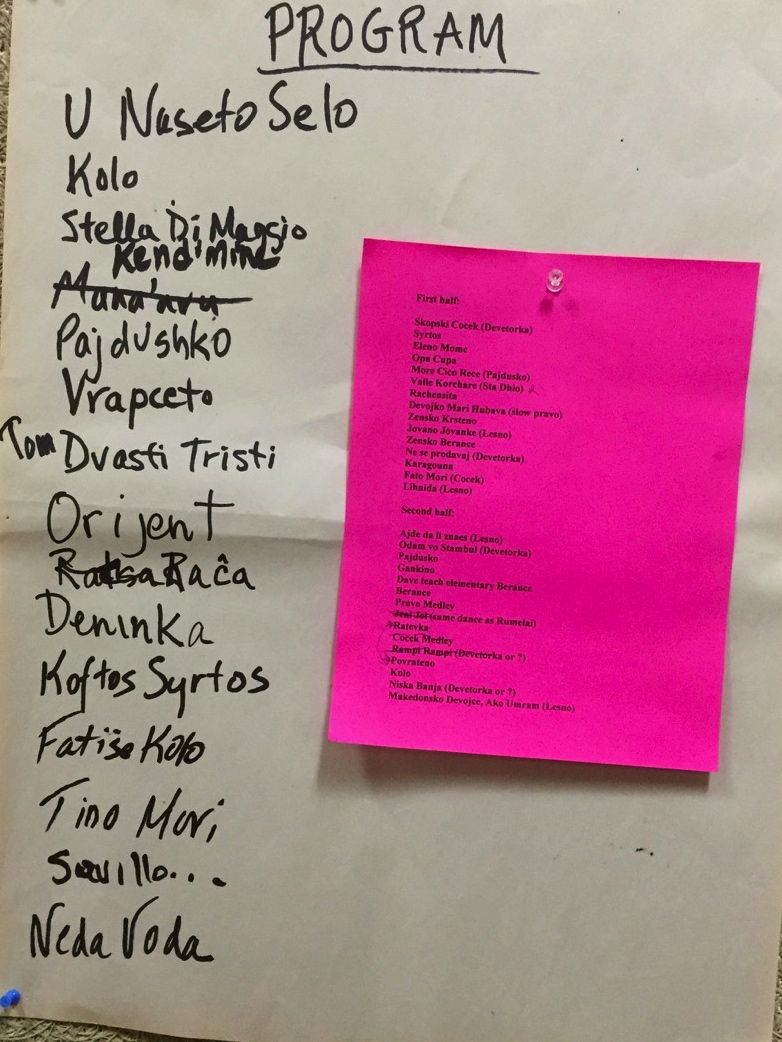 PROGRAM
U Naseto Selo
Kolo
Stella Di Maggio
Kend'mine
Pajdushko
Vrapceto
Tom Dvasti Tristi
Orijent
Rača
Deninka
Koftos Syrtos
Fatiše Kolo
Tino Mori
Neda Voda
First half:
Skopski Cocek (Devetorka)
Syrtos
Eleno Mome
Opa Cupa
More Cico Rece (Pajdusko)
Valle Korchare (Sta Dhio)
Rachensita
Devojko Mari Hubava (slow pravo)
Zensko Krsteno
Jovano Jovanke (Lesno)
Zensko Berance
Ne se prodavaj (Devetorka)
Karagouna
Fato Mori (Cocek)
Lihnida (Lesno)
Second half:
Ajde da li znaes (Lesno)
Odam vo Stambul (Devetorka)
Pajdusko
Gankino
Dave teach elementary Berance
Berance
Pravo Medley
Jeni Jol (same dance as Rumelai)
Ratevka
Cocek Medley
Rampi Rampi (Devetorka or ?)
Povrateno
Kolo
Niska Banja (Devetorka or ?)
Makedonsko Devojce, Ako Umram (Lesno)